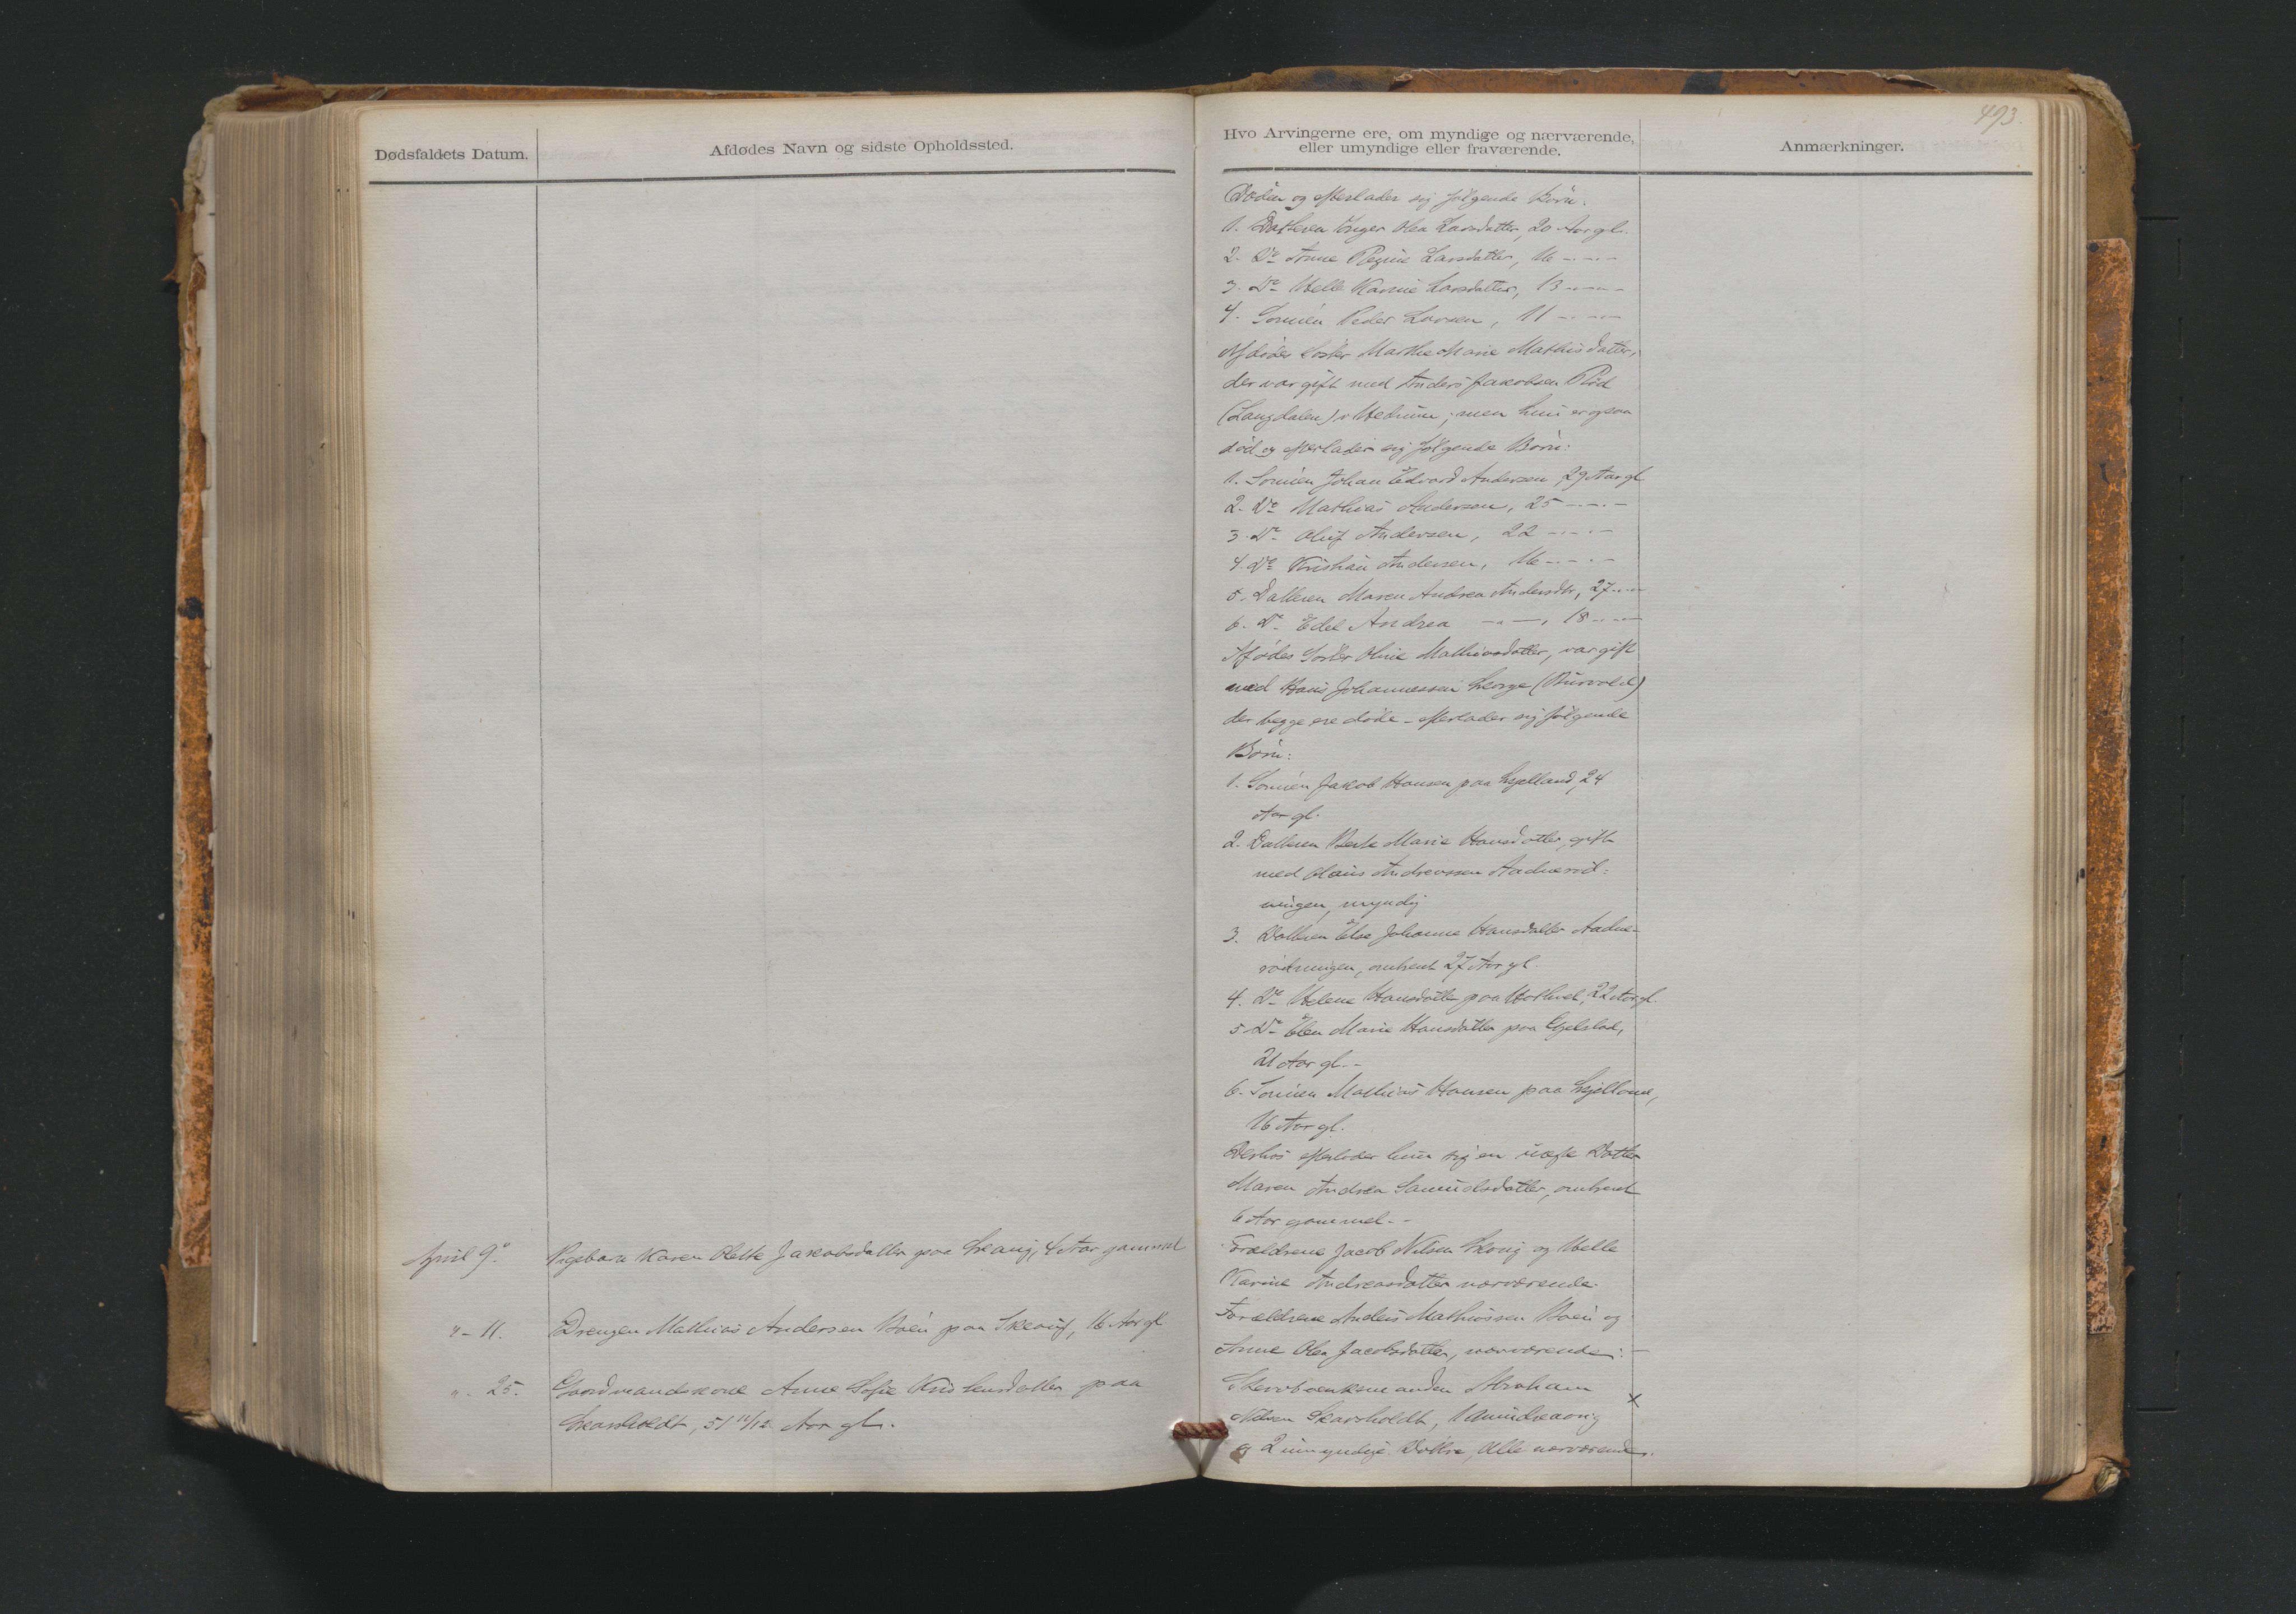 493.
Dødsfaldets Datum.
Afdødes Navn og sidste Opholdssted.
Hvo Arvingerne ere, om myndige og nærværende,
eller umyndige eller fraværende.
Anmærkninger.
Døden og efterlader sig følgende Børn:
1. Datteren Inger Olea Larsdatter, 20 Aar gl.
2. Do Anne Regine Larsdatter, 16 -"-"-
3. Do Helle Karine Larsdatter, 13 -"-"-
4. Sønnen Peder Larsen, 11 -"-"-
Afdødes Søster Marthe Marie Mathisdatter,
der var gift med Anders Jakobsen Rød
(Langdalen) i Hedrum; men hun er ogsaa
død og efterlader sig følgende Børn:
1. Sønnen Johan Edvard Andersen 29 Aar gl
2. Do Mathias Andersen, 25 -"-"-
3. Do Oluf Andersen, 22 -"-"-
4. Do Kristian Andersen, 16 -"-"-
5. Datteren Maren Andrea Andersdtr, 27 -"-
6. Do Edel Andrea -"-, 18 -"-
Afdødes Søster Oline Mathiasdatter, var gift
med Hans Johannessen
der begge ere døde - efterlader sig følgende
Børn:
1. Sønnen Jakob Hansen paa 24
Aar gl.
2. Datteren Berte Marie Hansdatter, gift
med Olaus Andreassen Aadnerød-
ningen, myndig
3. Datteren Else Johanne Hansdatter Aadne-
rødningen, omtrent 27 Aar gl.
4. Do Helene Hansdatter paa 22 Aar gl.
5. Do Elen Marie Hansdatter paa
21 Aar gl. -
6. Sønnen Mathias Hansen paa
16 Aar gl.
Derhos efterlader hun sig en uægte Datter
Maren Andrea Samuelsdatter, omtrent
6 Aar gammel. -
April 9. Pigebarn Karen Olette Jakobsdatter paa Skaug, 4 Aar gammel
Forældrene Jacob Nilsen Skoug og Helle
Karine Andreasdatter nærværende.
" - 11. Drengen Mathias Andersen Boen paa Skoug, 16 Aar gl
Forældrene Anders Mathiassen Boen og
Anne Olea Jacobsdatter, nærværende: -
" - 25. Gaardmandskone Anne Sofie Kristensdatter paa
Skarsholdt, 51 11/12 Aar gl.
Skovbonksmanden Abraham ×
Nilsen Skarsholdt, 1 mindreaarig
og 2 umyndige Døttre, Alle nærværende.